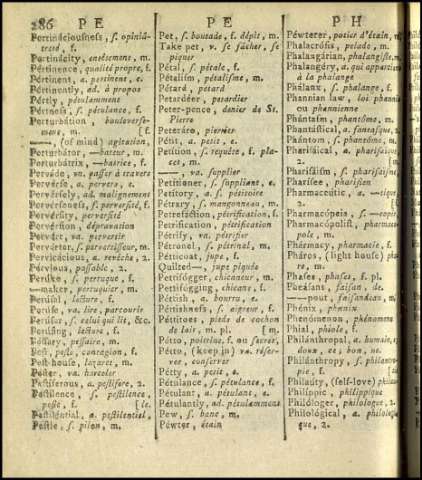 286 P E P E P H
Pertináciousness, s. opiniâ-
treté, f.
Pertinácity, entêtement, m.
Pértinence, qualité propre, f.
Pértinent, a. pertinent, e.
Pértinently, ad. à propos
Pértly, pétulamment
Pértness, s. pétulance, f.
Perturbátion, bouleverse-
ment, m. [f.
—, (of mind) agitation,
Perturbátor, —bateur, m.
Perturbátrix, —batrice, f.
Perváde, va. passer à travers
Pervérse, a. pervers, e.
Pervérsely, ad. malignement
Pervérseness, s. perversité, f.
Pervérsity, perversité
Pervérsion, dépravation
Pervért, va. pervertir
Pervérter, s. pervertisseur, m.
Pervicácious, a. revêche, 2.
Pérvious, passable, 2.
Perúke, s. perruque, f.
—maker, perruquier, m.
Perúsal, lecture, f.
Perúse, va. lire, parcourir
Perúser, s. celui qui lit, &c.
Perúsing, lecture, f.
Péssary, pessaire, m.
Pest, peste, contagion, f.
Pest-house, lazaret, m.
Péster, va. harceler
Pestíferous, a. pestifere, 2.
Péstilence, s. pestilence,
peste, f. [le.
Pestiléntial, a. pestilentiel,
Péstle, s. pilon, m.
Pet, s. boutade, f. dépit, m.
Take pet, v. se fâcher, se
piquer
Pétal, s. pétale, f.
Pétalism, pétalisme, m.
Pétard, pétard
Petardéer, petardier
Peter-pence, denier de St.
Pierre
Peteráro, pierrier
Pétit, a. petit, e.
Petítion, s. requête, f. pla-
cet, m.
—, va. supplier
Petítioner, s. suppliant, e.
Petítory, a. pétitoire
Pétrary, s. mangonneau, m.
Petrefáction, pétrification, f.
Petrificátion, pétrification
Pétrify, va. pétrifier
Pétronel, s. pétrinal, m.
Pétticoat, jupe, f.
Quilted—, jupe piquée
Pettifógger, chicaneur, m.
Pettifógging, chicane, f.
Péttish, a. bourru, e.
Péttishness, s. aigreur, f.
Péttitoes, pieds de cochon
de lait, m. pl. [m.
Pétto, poitrine, f. ou secret,
Pétto, (keep in) va. réser-
ver, conserver
Pétty, a. petit, e.
Pétulance, s. pétulance, f.
Pétulant, a. pétulant, e.
Pétulantly, ad. pétulamment
Pew, s. banc, m.
Péwter, étain
Péwterer, potier d'étain, m.
Phalacrósis, pelade, m.
Phalangárian, phalangiste, m.
Phalangéry, a. qui appartient
à la phalange
Phálanx, s. phalange, f.
Phannian law, loi phannie
ou phannienne
Phántasm, phantôme, m.
Phantástical, a. fantasque, 2.
Phántom, s. phantôme, m.
Pharisáical, a. pharisaïque,
2.
Phárisaism, s. pharisaïsme,
Phárisee, pharisien
Pharmacéutic, a. —tique,
2.
Pharmacópeia, s. —copée,
Pharmacópolist, pharmaco-
pole, m.
Phármacy, pharmacie, f.
Pháros, (light house) pha-
re, m.
Phases, phases, f. pl.
Phéasans, faisan, de.
—pout, faisandeau, m.
Phénix, phénix
Phenómenon, phénomene
Phíal, phiole, f.
Philánthropal, a. humain, e,
doux, ce; bon, ne.
Philánthropy, s. philanthro-
pie, f. [
Philáuty, (self-love) philau
Philíppic, philippique
Philóloger, philologue, 2.
Philológical, a. philologi-
que, 2.